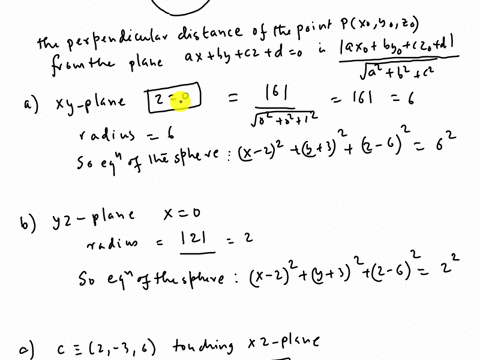 the perpendicular distance of the point P(x₀, y₀, z₀)
from the plane ax+by+cz+d=0 is |ax₀+by₀+cz₀+d| / √(a²+b²+c²)
a) xy-plane z=0 = |6| / √(0²+0²+1²) = |6| = 6
radius = 6
So eqⁿ of the sphere : (x-2)² + (y+3)² + (z-6)² = 6²
b) yz-plane x=0
radius = |2| = 2
So eqⁿ of the sphere : (x-2)² + (y+3)² + (z-6)² = 2²
c ≡ (2, -3, 6) touching xz-plane